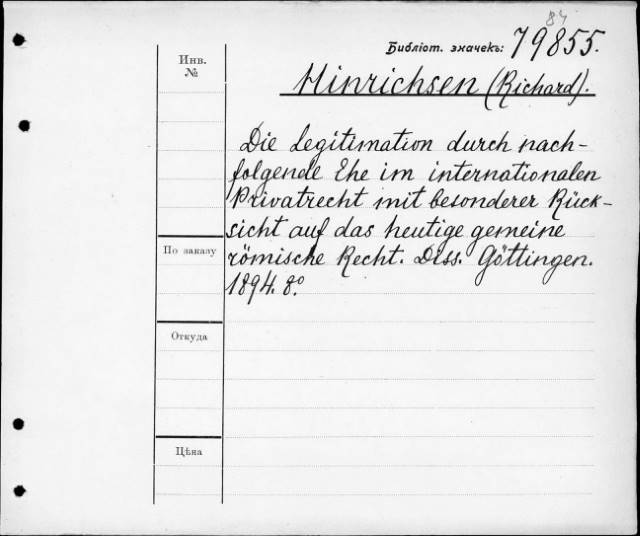 84
Библіот. значекъ: 79855.
Инв.
№
Hinrichsen (Richard).
Die Legitimation durch nach-
folgende Ehe im internationalen
Privatrecht mit besonderer Rück-
sicht auf das heutige gemeine
römische Recht. Diss. Göttingen.
1894. 8.º
По заказу
Откуда
Цѣна